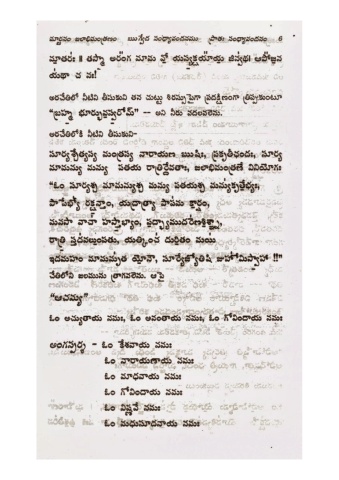 మార్జనం జలాభిమంత్రణం ఋగ్వేద సంధ్యావందనము ప్రాతః సంధ్యావందనం 6
మాతరః ॥ తస్మా అరంగ మామ వో యస్యక్షయాయ జిన్వథః ఆపోజన
యథా చ నః!
అరచేతిలో నీటిని తీసుకుని తన చుట్టు శిరస్సుపైగా ప్రదక్షిణంగా త్రిప్పుకుంటూ
“బ్రహ్మ భూర్భువస్వరోమ్” — అని నీరు వదలవలెను.
అరచేతిలోకి నీటిని తీసుకుని-
సూర్యశ్చేత్యస్య మంత్రస్య నారాయణ ఋషిః, ప్రకృతీఛందః, సూర్య
మామన్యు మన్యు పతయ రాత్రిర్దేవతాః, జలాభిమంత్రణే వినియోగః
“ఓం సూర్యశ్చ మామన్యుశ్చ మన్యు పతయశ్చ మన్యుకృతేభ్యః,
పాపేభ్యో రక్షన్తాం, యద్రాత్ర్యా పాపమ కార్షం,
మనసా వాచా హస్తాభ్యాం, పద్భ్యాముదరేణశిశ్నా,
రాత్రి స్తదవలుంపతు, యత్కించ దురితం మయి
ఇదమహం మామమృత యోనౌ, సూర్యేజ్యోతిషి జుహోమిస్వాహా !!”
చేతిలోని జలమును త్రాగవలెను. ఆపై
“ఆచమ్య”
ఓం అచ్యుతాయ నమః, ఓం అనంతాయ నమః, ఓం గోవిందాయ నమః
అంగస్పర్శ - ఓం కేశవాయ నమః
ఓం నారాయణాయ నమః
ఓం మాధవాయ నమః
ఓం గోవిందాయ నమః
ఓం విష్ణవే నమః
ఓం మధుసూదనాయ నమః